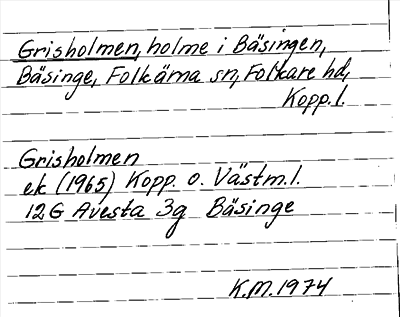 Grisholmen, holme i Bäsingen,
Bäsinge, Folkärna sn, Folkare hd,
Kopp. l.
Grisholmen
ek (1965) Kopp. o. Västm. l.
12G Avesta 3g Bäsinge
K.M. 1974